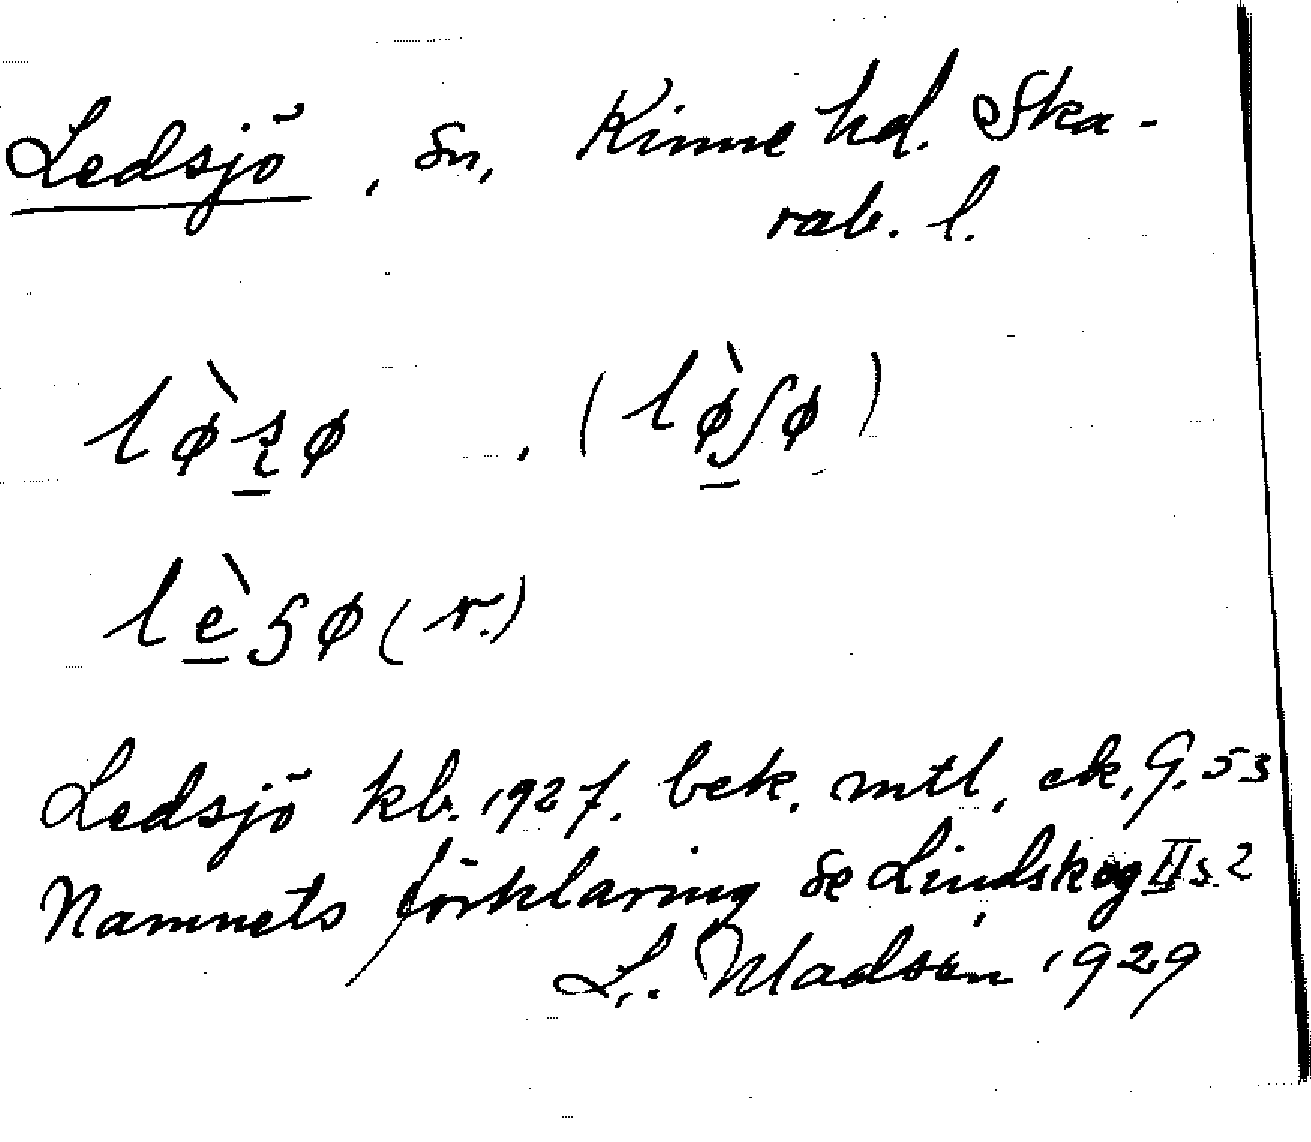 Ledsjö, sn, Kinne hd. Ska-
rab. l.
lø̀ʂø, (lø̀ʃø)
lèʂø (r.)
Ledsjö kb. 1927. bek. mtl, ek, G. 53
Namnets förklaring se Lindskog II s. 2
L. Madsén 1929